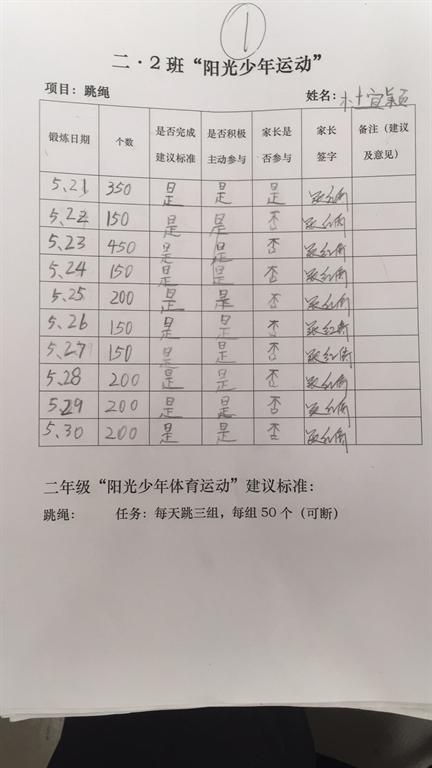 1
二·2班“阳光少年运动”
项目：跳绳 姓名：杜宜颖
锻炼日期 个数 是否完成建议标准 是否积极主动参与 家长是否参与 家长签字 备注（建议及意见）
5、21 350 是 是 是
5、22 150 是 是 否
5、23 450 是 是 否
5、24 150 是 是 否
5、25 200 是 是 否
5、26 150 是 是 否
5、27 150 是 是 否
5、28 200 是 是 否
5、29 200 是 是 否
5、30 200 是 是 否
二年级“阳光少年体育运动”建议标准：
跳绳： 任务：每天跳三组，每组50个（可断）